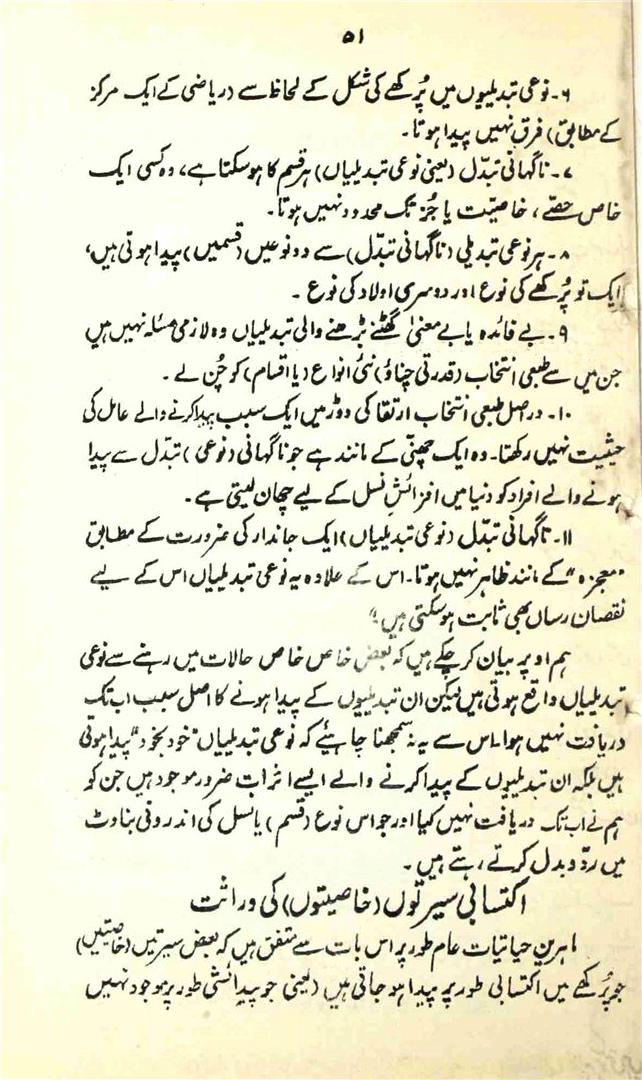 ۵۱
۶۔ نوعی تبدیلیوں میں پُرکھے کی شکل کے لحاظ سے دریاضی کے ایک مرکز
کے مطابق) فرق نہیں پیدا ہوتا۔
۷۔ ناگہانی تبدّل (یعنی نوعی تبدیلیاں) ہر قسم کا ہو سکتا ہے، وہ کسی ایک
خاص حصّے، خاصیّت یا جُز تک محدود نہیں ہوتا۔
۸۔ ہر نوعی تبدیلی (ناگہانی تبدّل) سے دو نوعیں (قسمیں) پیدا ہوتی ہیں،
ایک تو پُرکھے کی نوع اور دوسری اولاد کی نوع ۔
۹۔ بے فائدہ یا بے معنیٰ گھٹنے بڑھنے والی تبدیلیاں وہ لازمی مسئلہ نہیں ہیں
جن میں سے طبعی انتخاب (قدرتی چناؤ) نئی انواع (یا اقسام) کو چُن لے ۔
۱۰۔ دراصل طبعی انتخاب ارتقا کی دوڑ میں ایک سبب پیدا کرنے والے عامل کی
حیثیت نہیں رکھتا۔ وہ ایک چھنّی کے مانند ہے جو ناگہانی (نوعی) تبدّل سے پیدا
ہونے والے افراد کو دنیا میں افزائشِ نسل کے لیے چھان لیتی ہے ۔
۱۱۔ ناگہانی تبدّل (نوعی تبدیلیاں) ایک جاندار کی ضرورت کے مطابق
"معجزہ" کے مانند ظاہر نہیں ہوتا۔ اس کے علاوہ یہ نوعی تبدیلیاں اس کے لیے
نقصان رساں بھی ثابت ہو سکتی ہیں۔"
ہم اوپر بیان کر چکے ہیں کہ بعض خاص خاص حالات میں رہنے سے نوعی
تبدیلیاں واقع ہوتی ہیں لیکن ان تبدیلیوں کے پیدا ہونے کا اصل سبب اب تک
دریافت نہیں ہوا۔ اس سے یہ نہ سمجھنا چاہیئے کہ نوعی تبدیلیاں "خود بخود" پیدا ہوتی
ہیں بلکہ ان تبدیلیوں کے پیدا کرنے والے ایسے اثرات ضرور موجود ہیں جن کو
ہم نے اب تک دریافت نہیں کیا اور جو اس نوع (قسم) یا نسل کی اندرونی بناوٹ
میں ردّ و بدل کرتے رہتے ہیں ۔
اکتسابی سیرتوں (خاصیتوں) کی وراثت
ماہرینِ حیاتیات عام طور پر اس بات سے متفق ہیں کہ بعض سیرتیں (خاصیتیں)
جو پُرکھے میں اکتسابی طور پر پیدا ہو جاتی ہیں (یعنی جو پیدائشی طور پر موجود نہیں